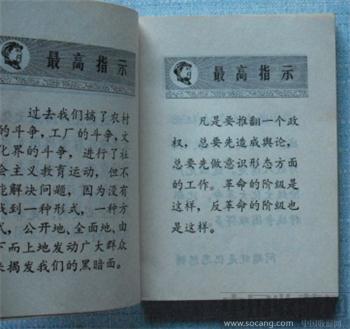 最高指示
过去我们搞了农村
的斗争，工厂的斗争，文
化界的斗争，进行了社
会主义教育运动，但不
能解决问题，因为没有
找到一种形式，一种方
式，公开地、全面地、由
下而上地发动广大群众
来揭发我们的黑暗面。
最高指示
凡是要推翻一个政
权，总要先造成舆论，
总要先做意识形态方面
的工作。革命的阶级是
这样，反革命的阶级也
是这样。
www.socang.com